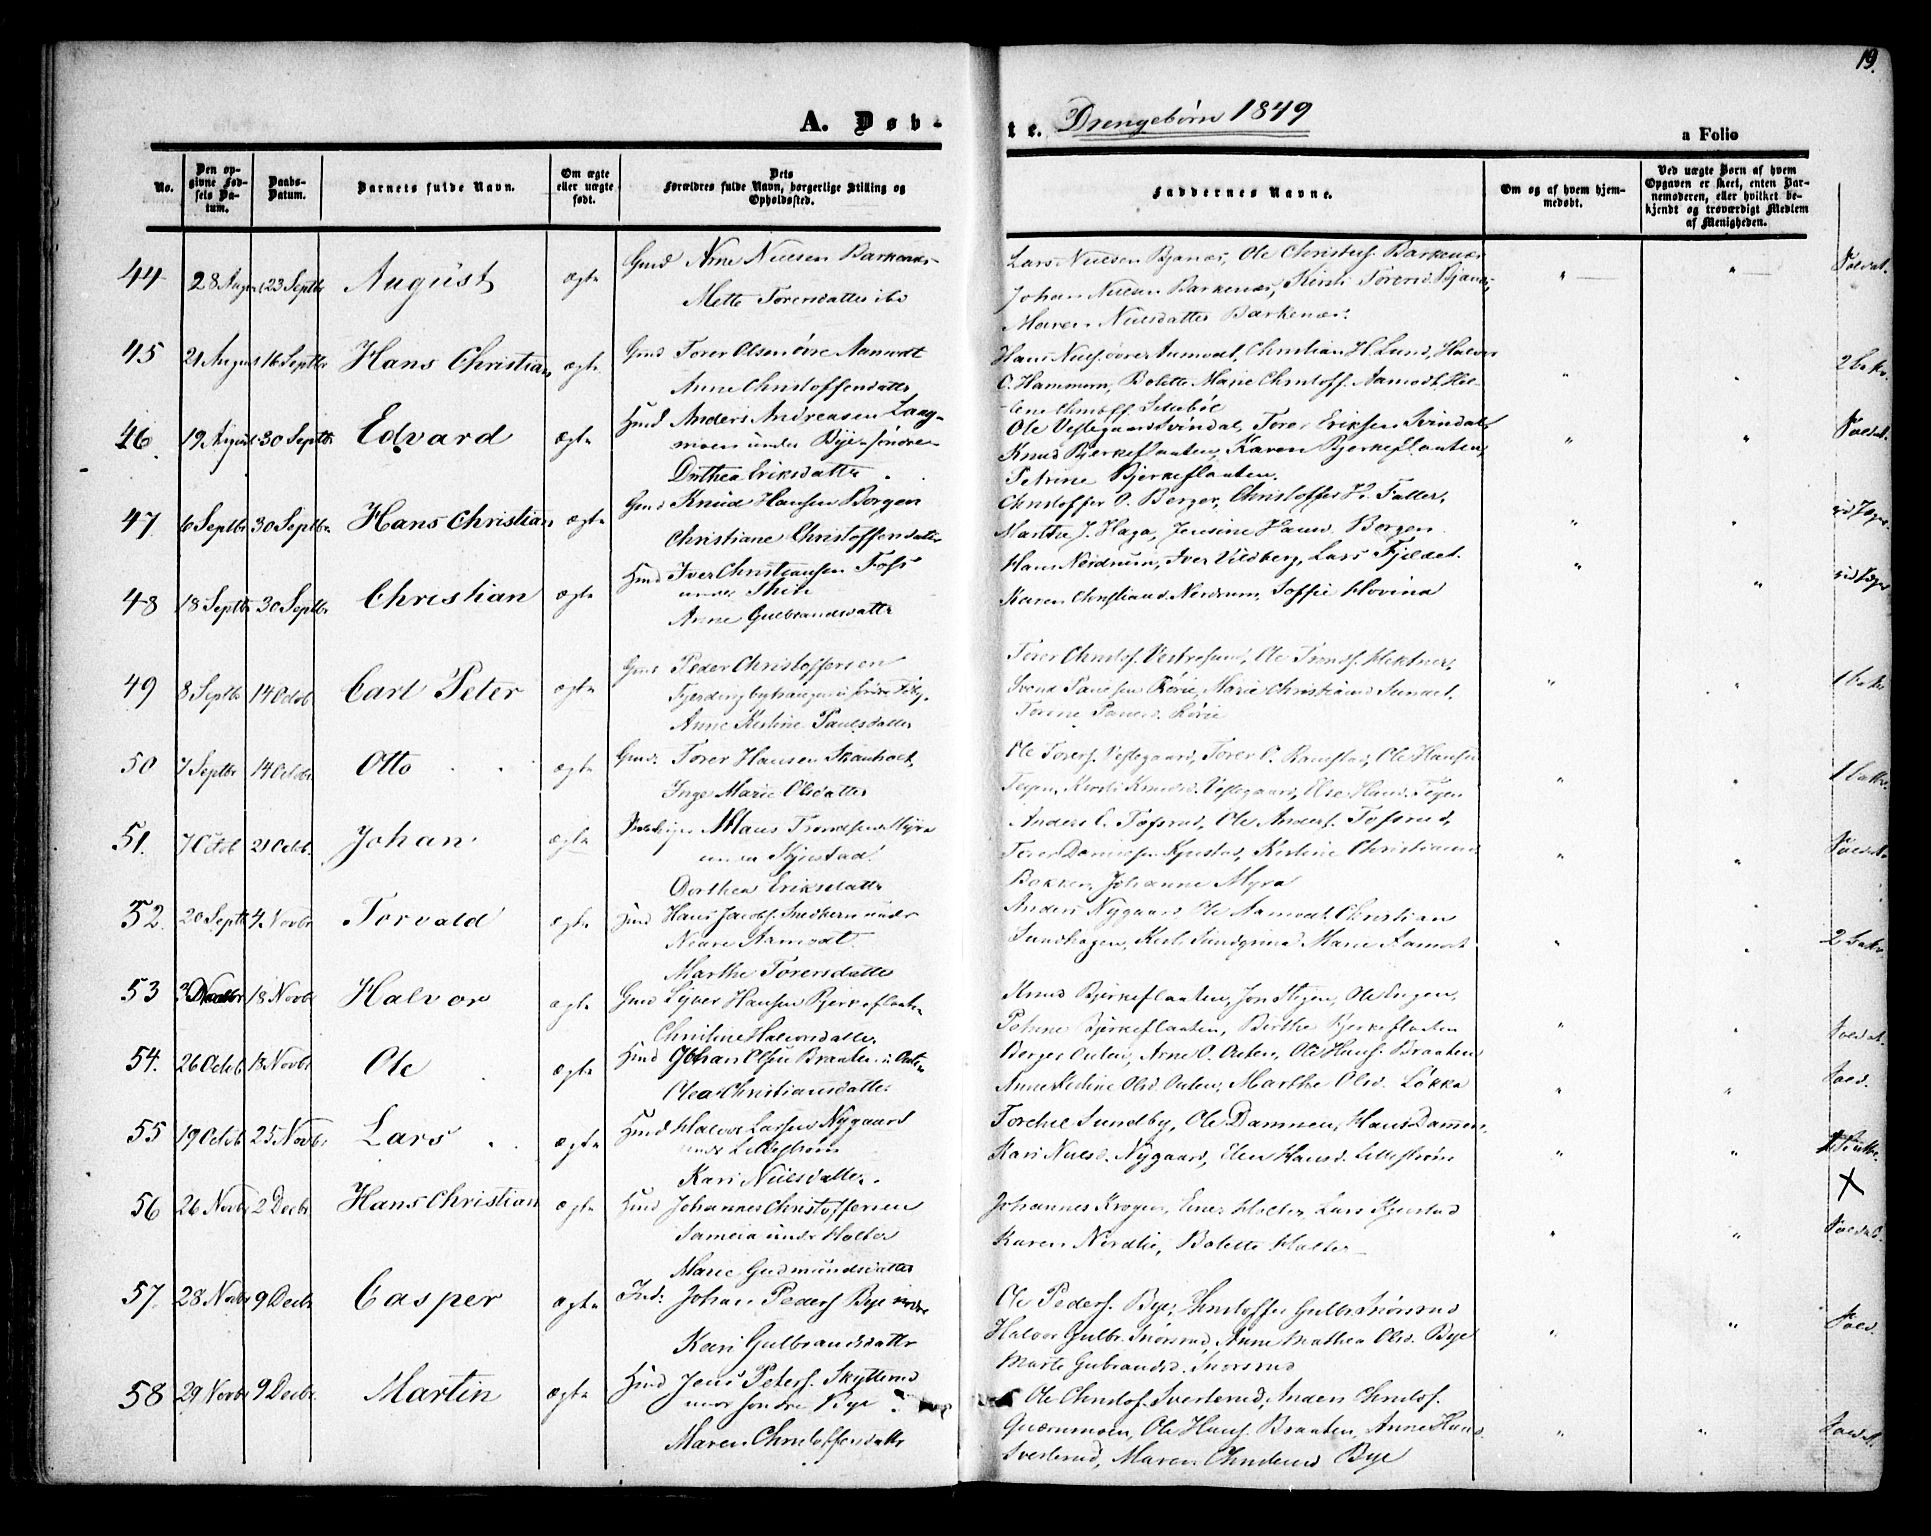 19.
A. Døb-
te. Drengebørn 1849
a Folio
No.
Den opgivne Fødsels Datum.
Daabs-Datum.
Barnets fulde Navn.
Om ægte eller uægte født.
Dets Forældres fulde Navn, borgerlige Stilling og Opholdssted.
Faddernes Navne.
Om og af hvem hjemmedøbt.
Ved uægte Børn af hvem Opgaven er skeet, enten Barnemoderen, eller hvilket bekjendt og troværdigt Medlem af Menigheden.
44 28 Aug 23 Septbr August ægte Gmd Arne Nielsen Barkenæs
Mette Torersdatter ibd
Lars Nielsen Bjanæs, Ole Christens. Barkenæs
Johan Nielsen Barkenæs, Kirsti Torersd. Bjanæs,
Maren Nielsdatter Barkenæs.
45 21 August 16 Septbr Hans Christian ægte Gmd Torer Olsen øvre Aamodt
Anne Christoffersdatter
Hans Niels. øvre Aamodt, Christian H. Lund, Halvor
O. Hammern, Bolette Marie Christoff. Aamodt, Hel-
46. 19 August 30 Septbr Edvard ægte Hmd Anders Andreasen Lang-
moen under Bye søndre
Dorthea Eriksdatter
Ole Vestegaard Svindal, Torer Eriksen Svindal,
Knud Bjerkeflaaten, Karen Bjerkeflaaten,
Petrine Bjerkeflaaten.
47. 6 Septbr 30 Septbr Hans Christian ægte Gmd Knud Hansen Borgen
Christiane Christoffersdatter
Christoffer O. Berger, Christoffer H. Faller,
Marthe J. Haga, Jensine Hansd. Borgen
48 18 Septbr 30 Septbr Christian ægte Hmd Iver Christiansen Foss
under
Anne Gulbrandsdatter
Hans Nordrum, Iver Vildberg, Lars Fjeldet.
Karen Christiansd. Nordrum, Soffie Hovind
49 8 Septbr 14 Octob. Carl Peter ægte Gmd Peder Christoffersen
Anne Kirstine Paulsdatter
Torer Christof. Vestresund, Ole
Svend Paulsen Rørie, Marie Christiansd Sundet.
Torine Paulsd. Rørie
50 7 Septbr 14 Octobr Otto ægte Gmd: Torer Hansen Skanholt
Inge Marie Olsdatter
Ole Torers. Vestegaard, Torer O. Ramstad, Ole Hansen
Tegen, Kirsti Knudsd. Vestegaard, Else Hansd. Tegen
51. 7 Octob 21 Octob. Johan ægte Klaus Trondsen Myra
under Kjustad.
Dorthea Eriksdatter
Anders O. Tofsrud, Ole Anders. Tofsrud,
Torer Danielsen Kjustad, Kirstine Christiansd
Bakken, Johanne Myra
52. 20 Septb 4 Novbr Torvald ægte Hmd Hans Jacobs. Snekkern under
Nedre Aamodt.
Marthe Torersdatter
Anders Nygaard, Ole Aamodt, Christian
Sundhagen, Marie Aamodt
53 18 Novbr Halvor ægte Gmd Syver Hansen Bjerkeflaaten
Christine Halvorsdatter.
Knud Bjerkeflaaten, Jon Stegen, Ole Engen,
Petrine Bjerkeflaaten, Berthe Bjerkeflaaten
54. 26 Octob. 18 Novbr Ole ægte Hmd Johan Olsen Braaten i Outen
Olea Christiansdatter
Berger Outen, Arne O. Outen, Ole Hans. Braaten
Anne Kirstine Olsd. Outen, Marthe Olsd. Løkka
55 19 Octob 25 Novbr Lars ægte Hmd Halvor Larsen Nygaard
under Lillestrøm
Kari Nielsdatter
Torchel Sundby, Ole Dammen, Hans Dammen,
Kari Nielsd. Nygaard, Elen Hansd. Lillestrøm
56 26 Novbr 2 Decbr Hans Christian ægte Hmd Johannes Christoffersen
Sameia under Holter
Marie Gudmundsdatter
Johannes Krogen, Einer Holter, Lars Kjustad
Karen Nordlie, Bolette Holter
57. 28 Novbr 9 Decbr Casper ægte Ind: Johan Peders. Bye nordre
Kari Gulbrandsdatter
Ole Peders. Bye, Christoffer Gulbr. Snorsrud
Halvor Gulbr. Snorsrud, Anne Mathea Olsd. Bye
Marte Gubrandsd. Snorsrud
58 29 Novbr 9 Decbr Martin ægte Hmd Jens Peters. Skytterud
under søndre Bye
Maren Christoffersdatter
Ole Christof. Sverterud, Anders Christof.
Quernmoen, Ole Hans. Braaten, Anne Hansd
Sverterud, Maren Bye